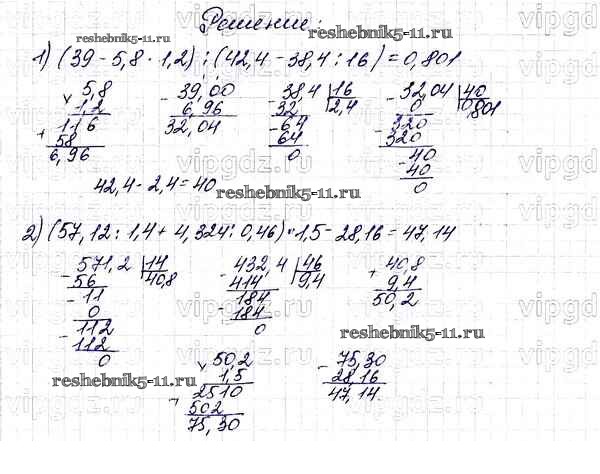 Решение:
reshebnik5-11.ru
1) (39 - 5,8 · 1,2) : (42,4 - 38,4 : 16) = 0,801
5,8
× 1,2
116
+ 58
6,96
- 39,00
6,96
32,04
38,4 | 16
- 32 | 2,4
64
- 64
0
- 32,04 | 40
0 | 0,801
320
- 320
- 40
40
0
42,4 - 2,4 = 40
reshebnik5-11.ru
2) (57,12 : 1,4 + 4,324 : 0,46) · 1,5 - 28,16 = 47,14
- 571,2 | 14
56 | 40,8
- 11
0
- 112
112
0
- 432,4 | 46
414 | 9,4
- 184
184
0
+ 40,8
9,4
50,2
reshebnik5-11.ru
reshebnik5-11.ru
× 50,2
1,5
+ 2510
502
75,30
- 75,30
28,16
47,14
vipgdz.ru